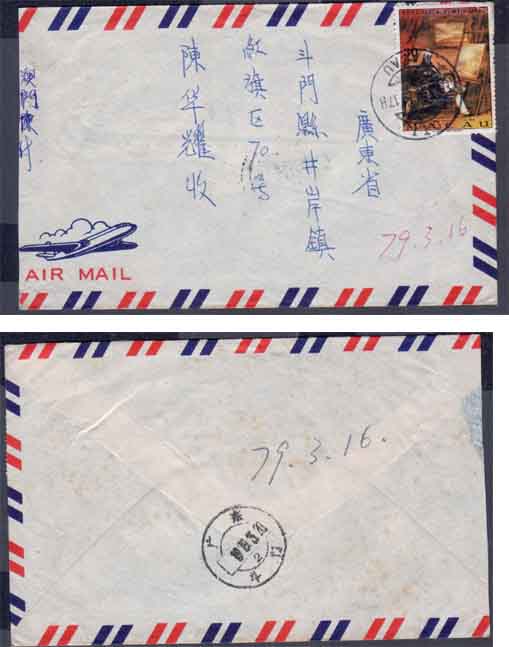 廣東省
斗門縣井岸鎮
紅旗区70号
陳华耀收
澳門陳
79.3.16
AIR MAIL
79.3.16.
广东
斗门
2